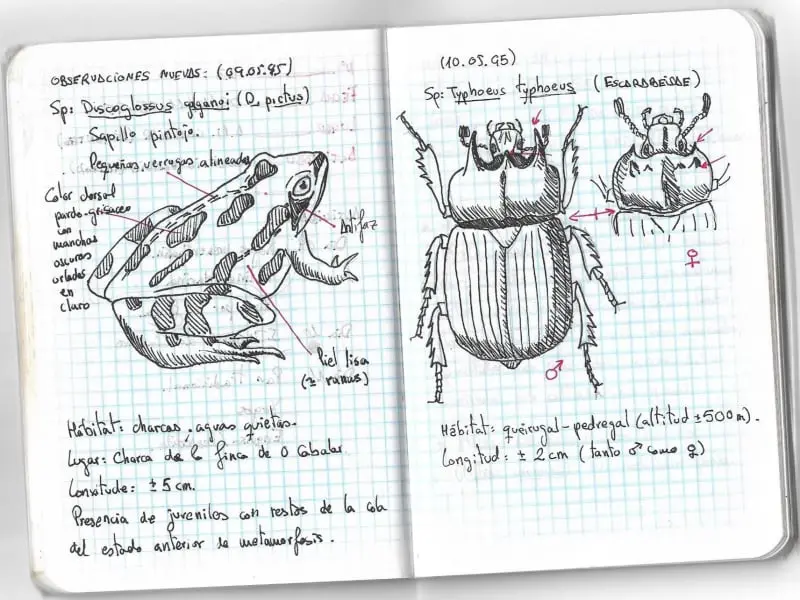 OBSERVACIONES NUEVAS: (09.05.95)
Sp: Discoglossus galganoi (D. pictus)
Sapillo pintojo.
Pequeñas verrugas alineadas
Color dorsal
pardo-grisáceo
con
manchas
oscuras
orladas
en
claro
Antifaz
Piel lisa
(± ranas)
Hábitat: charcas, aguas quietas.
Lugar: Charca de la finca de O Cabalar
Longitude: ± 5 cm.
Presencia de juveniles con restos de la cola
del estado anterior a metamorfosis.
(10.05.95)
Sp: Typhoeus typhoeus (ESCARABEIDAE)
♀
♂
Hábitat: queirugal-pedregal (altitud ±500 m).
Longitud: ± 2 cm (tanto ♂ como ♀)